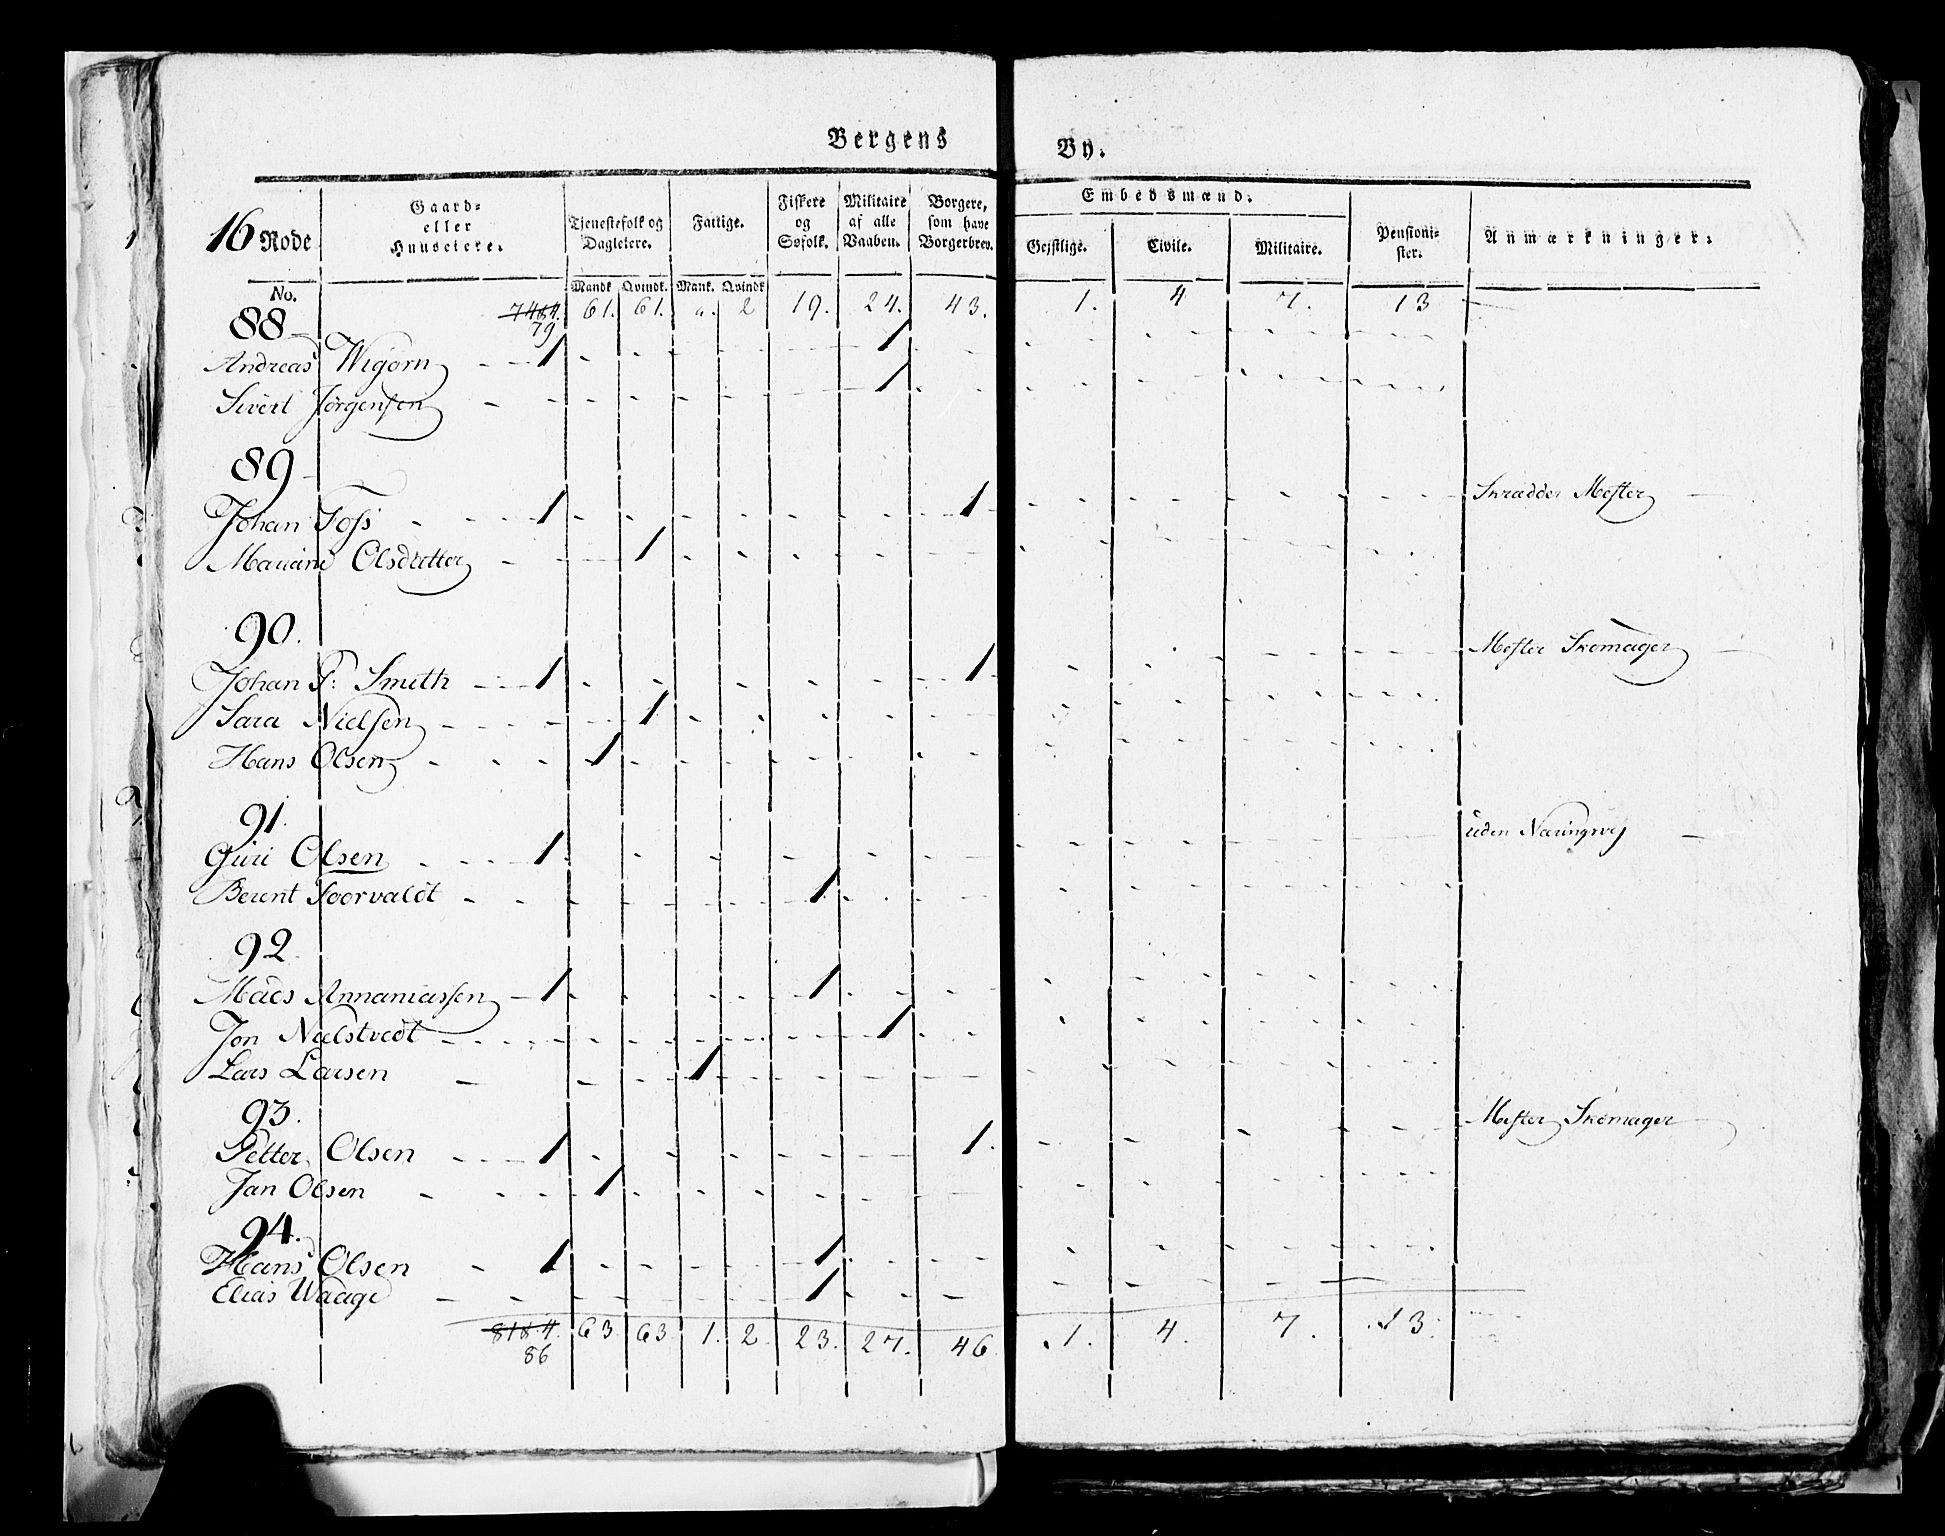 Bergens By.
16 Rode
Gaard- eller Huuseiere.
Tjenestefolk og Dagleiere.
Fattige.
Fiskere og Søfolk.
Militaire af alle Vaaben.
Borgere, som have Borgerbrev.
Embedsmænd.
Gejstlige.
Civile.
Militaire.
Pensionister.
Anmærkninger.
No.
Mandk. Qvindk. Mank. Qvindk.
79 61. 61. „. 2 19. 24. 43. 1. 4 7. 13
88
Andreas Wigørn 1 1
Sivert Jørgensen 1
89
Johan Foss 1 1 Skrædder Mester
Olsdatter 1
90.
Johan F: Smith 1 1 Mester Skomager
Sara Nielsen 1
Hans Olsen 1
91.
Guri Olsen 1 uden Næringsvej
Berent Toorvaldt 1
92
Mads Annaniassen 1 1
Jon Nielstvedt 1
Lars Larsen 1
93.
Petter Olsen 1 1. Mester Skomager
Jan Olsen 1
94.
Hans Olsen 1 1
Elias Waage 1
86 63 63 1. 2. 23. 27. 46 1. 4. 7. 13.